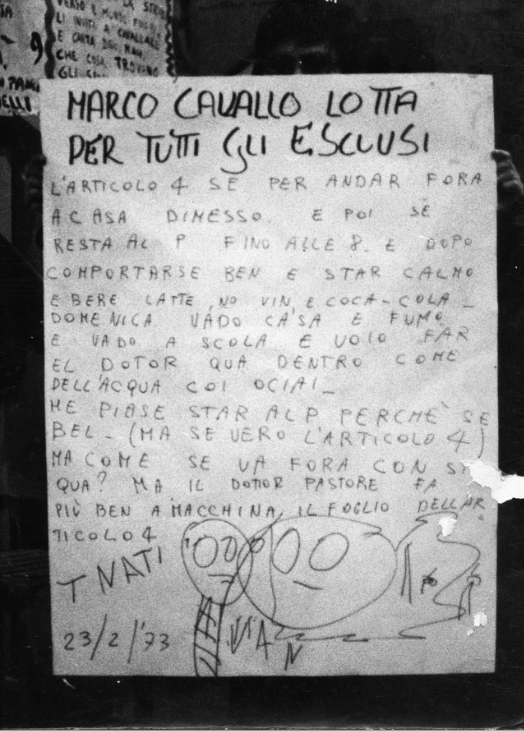 VERSO IL MONTE
LI INVITA A CAVALCARE
E CANTA
CHE COSA TROVANO
GLI
MARCO CAVALLO LOTTA
PER TUTTI GLI ESCLUSI
L'ARTICOLO 4 SE PER ANDAR FORA
A CASA DIMESSO. E POI SE
RESTA AL P FINO ALLE 8. E DOPO
COMPORTARSE BEN E STAR CALMO
E BERE LATTE, NO VIN, E COCA-COLA_
DOMENICA VADO CA'SA E FUMO
E VADO A SCOLA E VOIO FAR
EL DOTOR QUA DENTRO COME
DELL'ACQUA COI OCIAI_
ME PIASE STAR AL P PERCHE' SE
BEL_ (MA SE VERO L'ARTICOLO 4)
MA COME SE VA FORA CON STI
QUA? MA IL DOTTOR PASTORE FA
PIÙ BEN A MACCHINA, IL FOGLIO DELL'AR
TICOLO 4
T NATI
23/2/'73